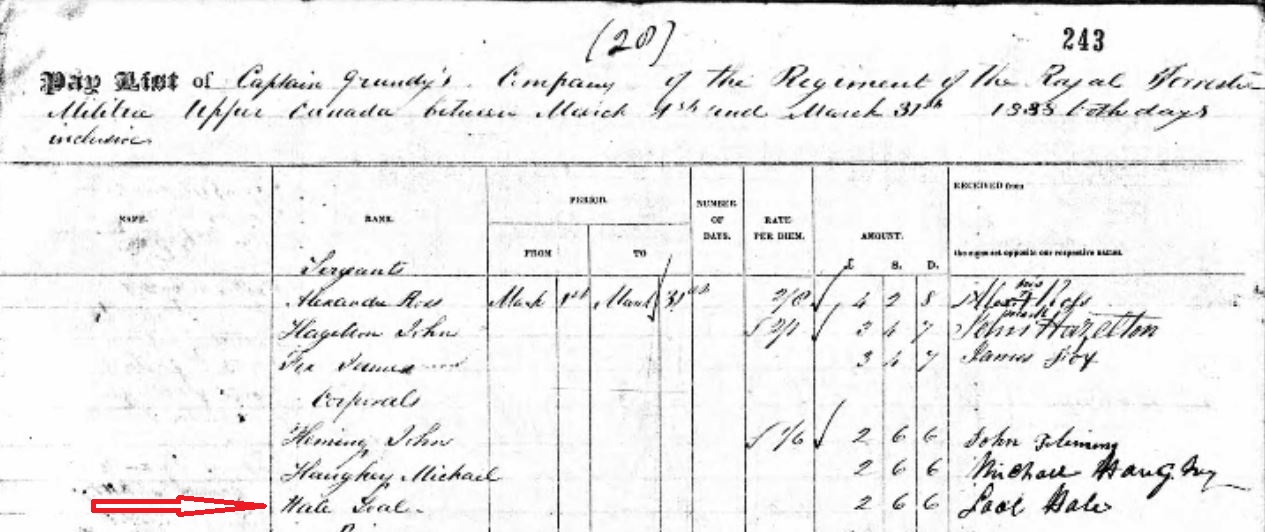 (20)
243
Pay List of Captain Grundy's Company of the Regiment of the Royal Forrester
Militia Upper Canada between March 1st and March 31st 1838 both days
inclusive
NAME. RANK. PERIOD. NUMBER OF DAYS. RATE PER DIEM. AMOUNT. RECEIVED from
FROM TO £ S. D. the sums set opposite our respective names.
Sergants
Alexander Ross March 1st March 31st 2/8 4 2 8 Alex his mark Ross
Hagelton John 2/1 3 4 7 John Hazelton
Fox James 3 4 7 James Fox
Corporals
Fleming John 1/6 2 6 6 John Fleming
Haughey Michael 2 6 6 Michael Haughey
Hale 2 6 6 Hale